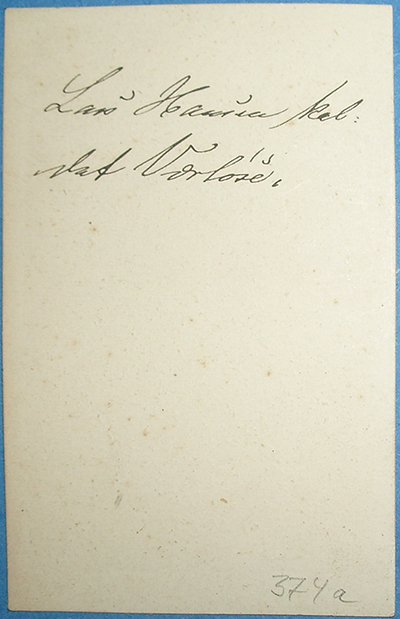 Lars Hansen kal-
dat Værlöse.
374a